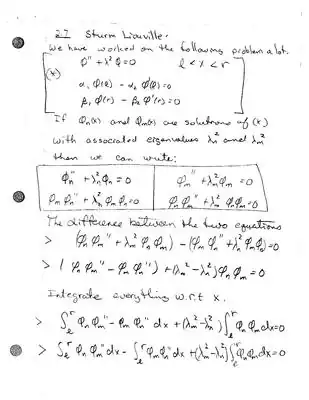 2.7 Sturm Liouville.
We have worked on the following problem a lot.
(*) φ'' + λ²φ = 0 l < x < r
α₁ φ(l) - α₂ φ'(l) = 0
β₁ φ(r) - β₂ φ'(r) = 0
If φn(x) and φm(x) are solutions of (*)
with associated eigenvalues λn² and λm²
then we can write:
φn'' + λn² φn = 0 φm'' + λm² φm = 0
φm φn'' + λn² φm φn = 0 φn φm'' + λm² φn φm = 0
The difference between the two equations
> (φn φm'' + λm² φn φm) - (φm φn'' + λn² φn φm) = 0
> (φn φm'' - φm φn'') + (λm² - λn²) φn φm = 0
Integrate everything w.r.t x.
> ∫ₗʳ φn φm'' - φm φn'' dx + (λm² - λn²) ∫ₗʳ φn φm dx = 0
> ∫ₗʳ φn φm'' dx - ∫ₗʳ φm φn'' dx + (λm² - λn²) ∫ₗʳ φn φm dx = 0